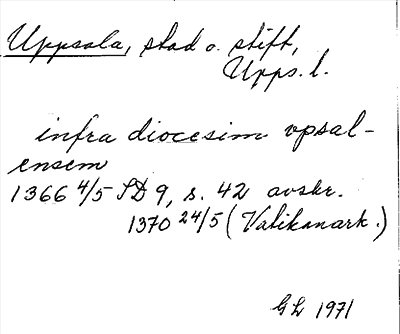 Uppsala, stad o. stift,
Upps. l.
infra diocesim vpsal-
ensem
1366 4/5 SD 9, s. 42 avskr.
1370 24/5 (Vatikanark.)
GL 1971